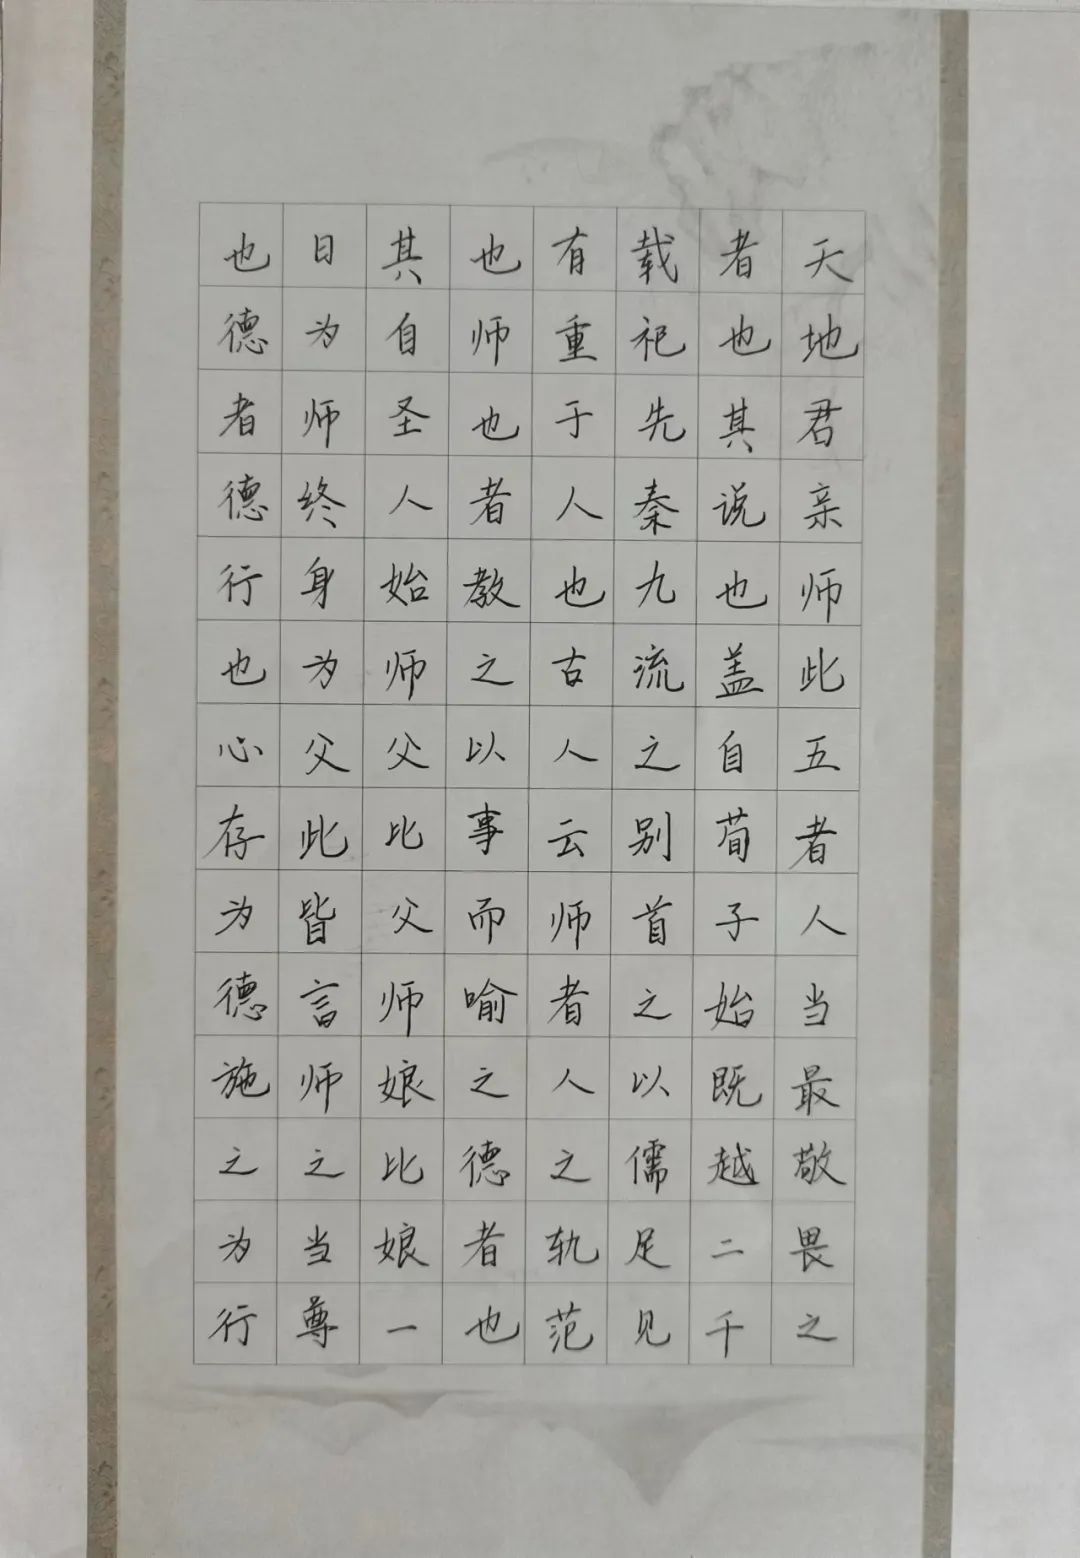 天地君亲师此五者人当最敬畏之
者也其说也盖自荀子始既越二千
载祀先秦九流之别首之以儒足见
有重于人也古人云师者人之轨范
也师也者教之以事而喻之德者也
其自圣人始师父比父师娘比娘一
日为师终身为父此皆言师之当尊
也德者德行也心存为德施之为行